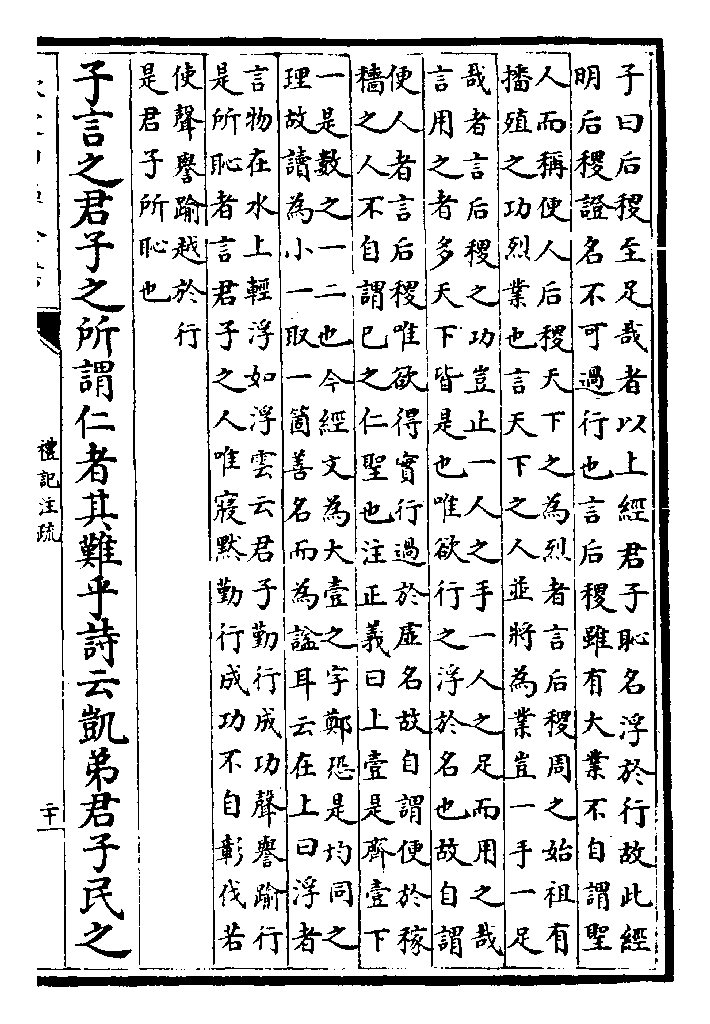 子曰后稷至足哉者以上經君子恥名浮於行故此經
明后稷證名不可過行也言后稷雖有大業不自謂聖
人而稱便人后稷天下之為烈者言后稷周之始祖有
播殖之功烈業也言天下之人並將為業豈一手一足
哉者言后稷之功豈止一人之手一人之足而用之哉
言用之者多天下皆是也唯欲行之浮於名也故自謂
便人者言后稷唯欲得實行過於虛名故自謂便於稼
穡之人不自謂已之仁聖也注正義曰上壹是齊壹下
一是數之一二也今經文為大壹之字鄭恐是均同之
理故讀為小一取一箇善名而為諡耳云在上曰浮者
言物在水上輕浮如浮雲云君子勤行成功聲譽踰行
是所恥者言君子之人唯寂默勤行成功不自彰伐若
使聲譽踰越於行
是君子所恥也
子言之君子之所謂仁者其難乎詩云凱弟君子民之
禮記注疏
二十